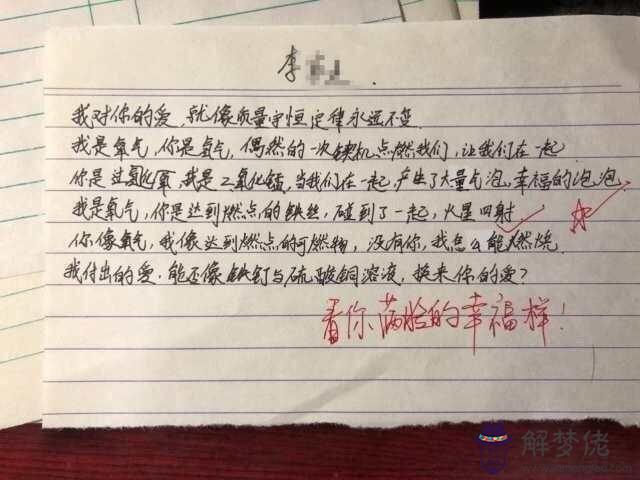 李
我对你的爱，就像质量守恒定律永远不变
我是氧气，你是氢气，偶然的一次契机点燃我们，让我们在一起
你是过氧化氢，我是二氧化锰，当我们在一起，产生了大量气泡，幸福的泡泡
我是氧气，你是达到燃点的铁丝，碰到了一起，火星四射
你像氧气，我像达到燃点的可燃物，没有你，我怎么能燃烧
我付出的爱，能否像铁钉与硫酸铜溶液，换来你的爱？
看你满脸的幸福样！
解梦佬